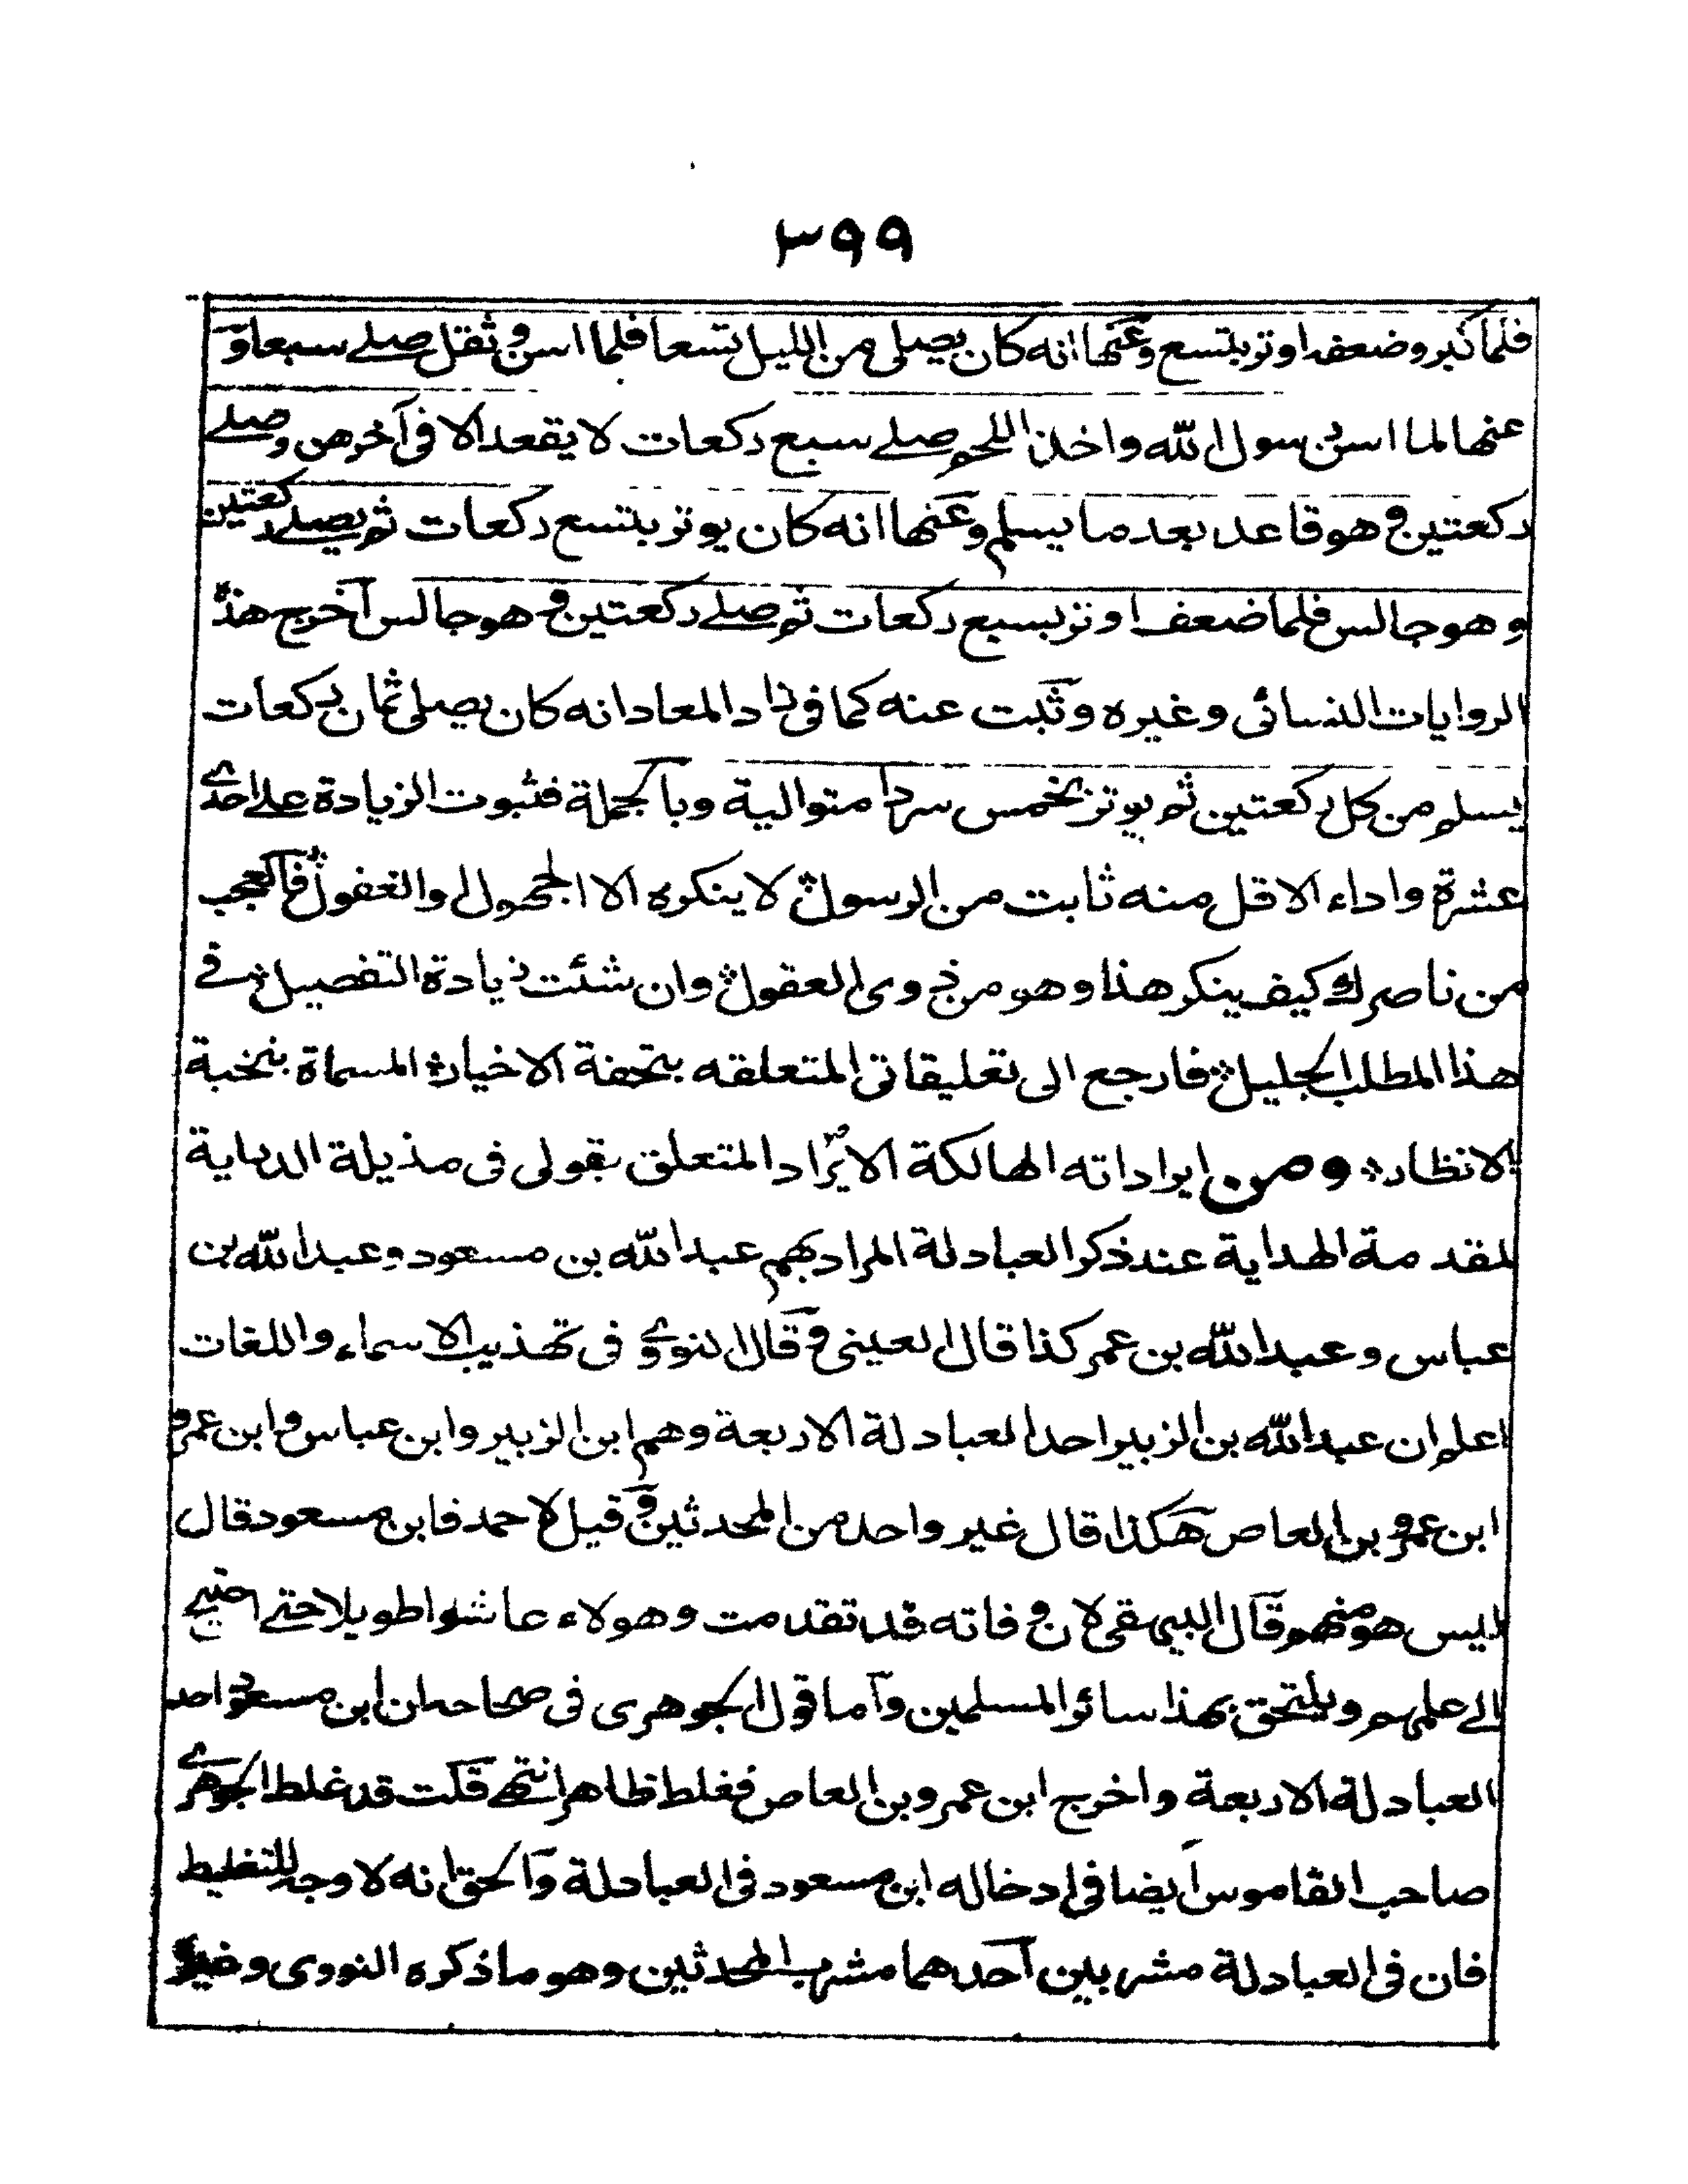 ٣٩٩
فلما كبر وضعف اوتر بتسع وعنها انه كان يصلى من الليل تسعا فلما اسن وثقل صلے سبعا و
عنها لما اسن رسول الله واخذ اللحم صلے سبع ركعات لا يقعد الا فى آخرهن وصلے
ركعتين وهو قاعد بعد ما يسلم وعنها انه كان يوتر بتسع ركعات ثم يصلے ركعتين
وهو جالس فلما ضعف اوتر بسبع ركعات ثم صلے ركعتين وهو جالس آخرج هذه
الروايات النسائى وغيره وثبت عنه كما فى زاد المعاد انه كان يصلى ثمان ركعات
يسلم من كل ركعتين ثم يوتر بخمس سردا متوالية وبالجملة فثبوت الزيادة علے احدے
عشرة واداء الاقل منه ثابت من الرسول لا ينكره الا الجهول والغفول فالعجب
من ناصرك كيف ينكر هذا وهو من ذوى العقول وان شئت زيادة التفصيل فے
هذا المطلب الجليل فارجع الى تعليقاتى المتعلقه بتحفة الاخيار المسماة بنخبة
الانظار ومن ايراداته الهالكة الايراد المتعلق بقولى فى مذيلة الدراية
لمقدمة الهداية عند ذكر العبادلة المراد بهم عبد الله بن مسعود وعبد الله بن
عباس وعبد الله بن عمر كذا قال العينى وقال النووے فى تهذيب الاسماء واللغات
اعلم ان عبد الله بن الزبير احد العبادلة الاربعة وهم ابن الزبير وابن عباس وابن عمر و
ابن عمرو بن العاص هكذا قال غير واحد من المحدثين وقيل لاحمد فابن مسعود قال
ليس هو منهم قال البيهقى لان وفاته قد تقدمت وهولاء عاشوا طويلا حتے احتيج
الے علمهم ويلتحق بهذا سائر المسلمين وآما قول الجوهرى فى صحاحه ان ابن مسعود احد
العبادلة الاربعة واخرج ابن عمرو بن العاص فغلط ظاهر انتهے قلت قد غلط الجوهرے
صاحب القاموس ايضا فى ادخاله ابن مسعود فى العبادلة وآلحق انه لا وجه للتغليط
فان فى العبادلة مشربين آحدهما مشرب المحدثين وهو ما ذكره النووى وغيره